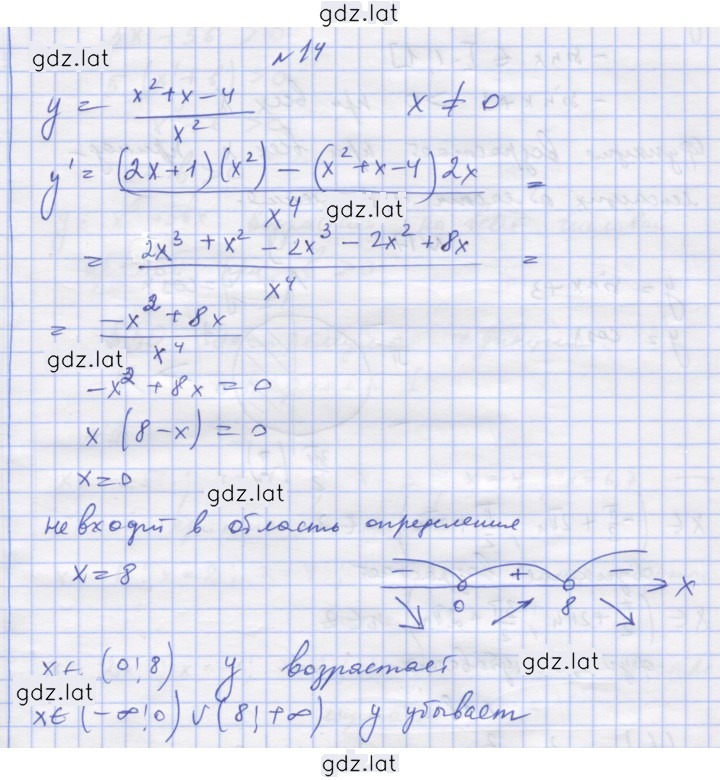 gdz.lat
gdz.lat
№14
y = (x² + x - 4) / x²    x ≠ 0
y' = ((2x+1)(x²) - (x² + x - 4) 2x) / x⁴ =
gdz.lat
= (2x³ + x² - 2x³ - 2x² + 8x) / x⁴ =
= (-x² + 8x) / x⁴
gdz.lat
-x² + 8x = 0
x (8 - x) = 0
x = 0
gdz.lat
не входит в область определения
x = 8
- + - x
0 8
x ∈ (0; 8) y возрастает
gdz.lat
gdz.lat
x ∈ (-∞; 0) ∪ (8; +∞) y убывает
gdz.lat